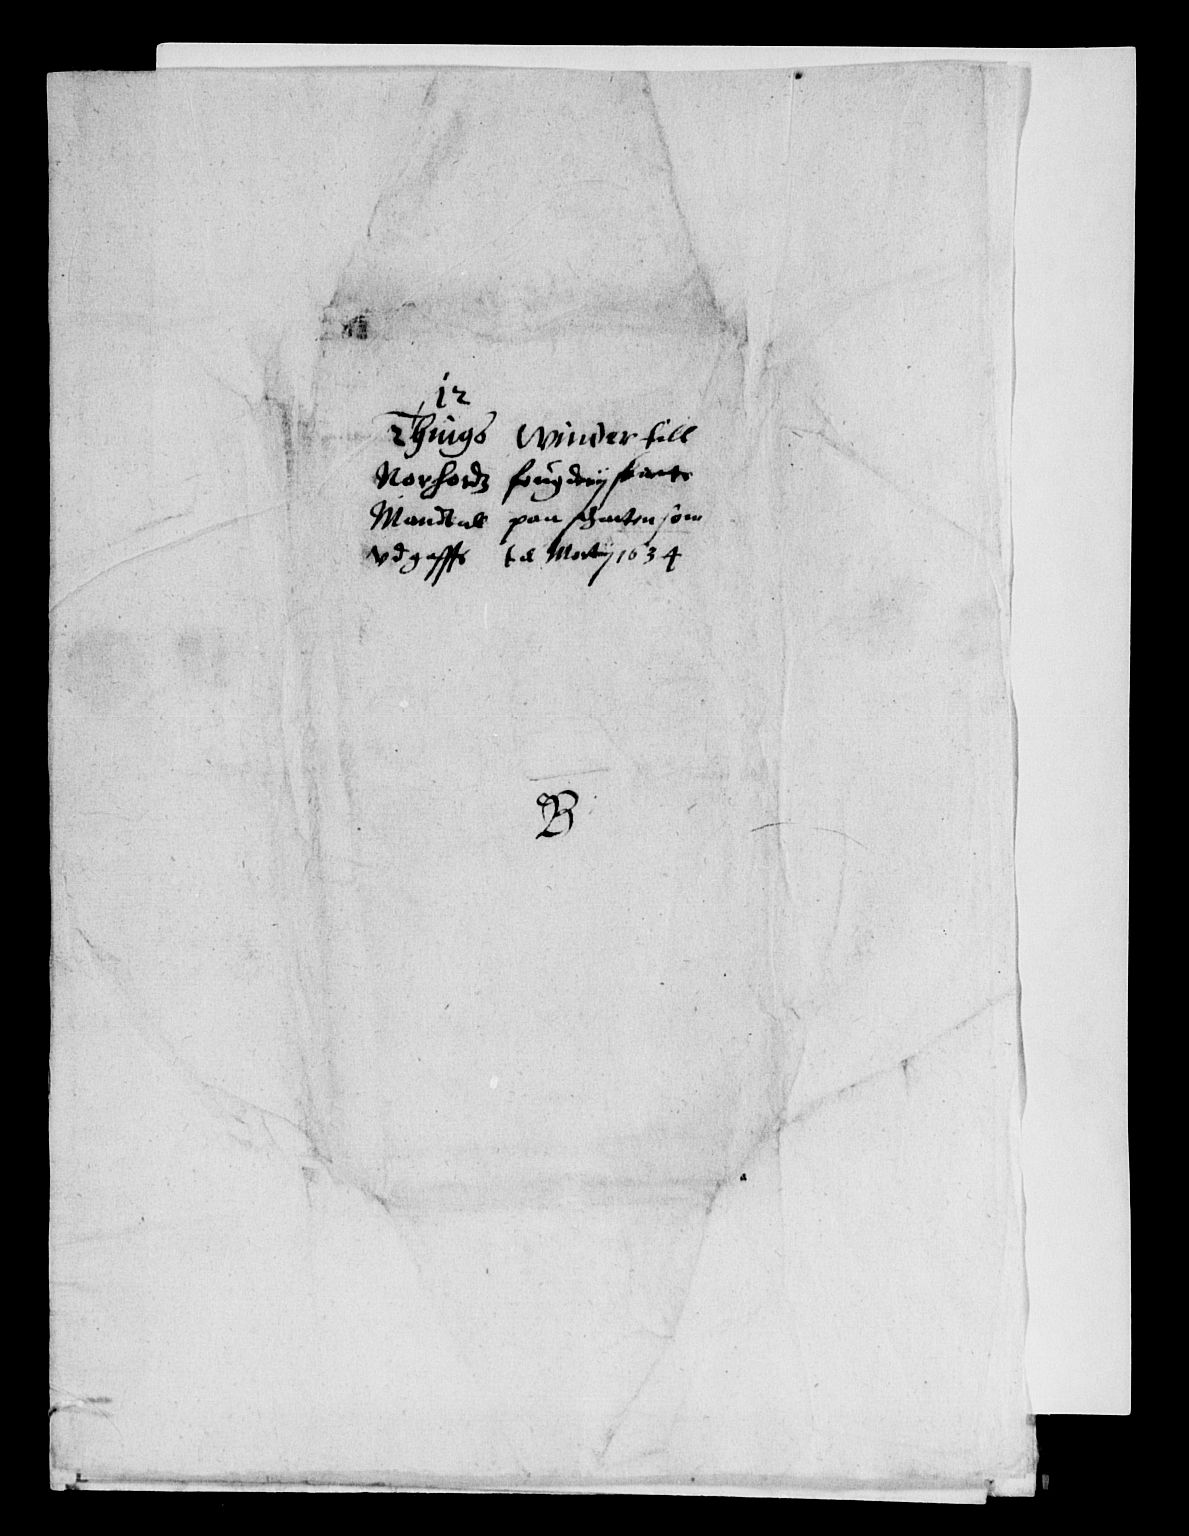 12
Things Winder till
Norhordz fougderij schatts
Mandtall paa schatten som
vdgaffs till Martij 1634
B